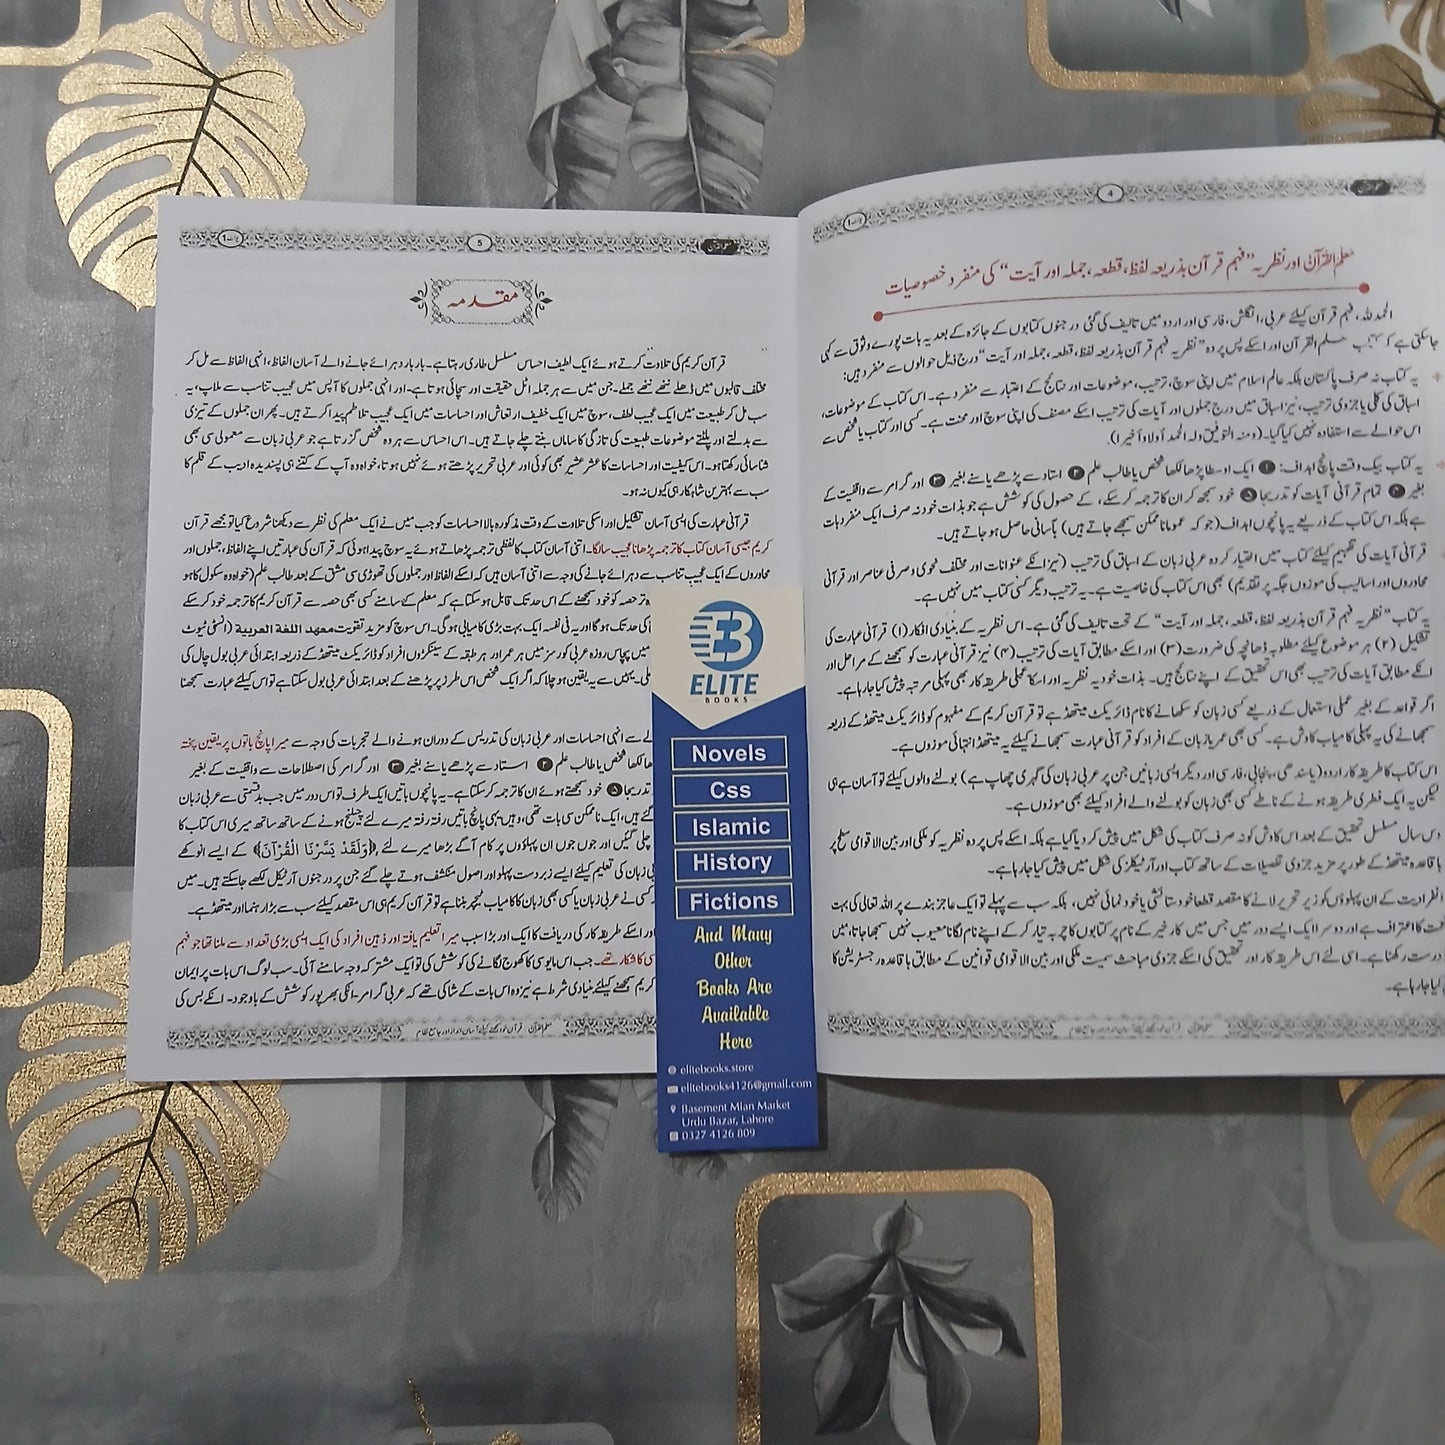 4
معلم القرآن اور نظریہ "فہم قرآن بذریعہ لفظ، قطعہ، جملہ اور آیت" کی منفرد خصوصیات
الحمدللہ، فہم قرآن کیلئے عربی، انگلش، فارسی اور اردو میں تالیف کی گئی درجنوں کتابوں کے جائزہ کے بعد یہ بات پورے وثوق سے کہی
جاسکتی ہے کہ کتاب معلم القرآن اور اسکے پس پردہ "نظریہ فہم قرآن بذریعہ لفظ، قطعہ، جملہ اور آیت" درج ذیل حوالوں سے منفرد ہیں:
یہ کتاب نہ صرف پاکستان بلکہ عالم اسلام میں اپنی سوچ، ترتیب، موضوعات اور نتائج کے اعتبار سے منفرد ہے۔ اس کتاب کے موضوعات،
اسباق کی کلی یا جزوی ترتیب، نیز اسباق میں درج جملوں اور آیات کی ترتیب اسکے مصنف کی اپنی سوچ اور محنت ہے۔ کسی اور کتاب یا شخص سے
اس حوالے سے استفادہ نہیں کیا گیا۔ (ومنہ التوفیق ولہ الحمد أولا وأخیرا)۔
یہ کتاب بیک وقت پانچ اہداف: ۱ ایک اوسطا پڑھا لکھا شخص یا طالب علم ۲ استاد سے پڑھے یا سنے بغیر ۳ اور گرامر سے واقفیت کے
بغیر ۴ تمام قرآنی آیات کو تدریجا ۵ خود سمجھ کر ان کا ترجمہ کرسکے، کے حصول کی کوشش ہے جو بذات خود نہ صرف ایک منفرد بات
ہے بلکہ اس کتاب کے ذریعے یہ پانچوں اہداف (جو کہ عموما ناممکن سمجھے جاتے ہیں) بآسانی حاصل ہو جاتے ہیں۔
قرآنی آیات کی تفہیم کیلئے کتاب میں اختیار کردہ عربی زبان کے اسباق کی ترتیب (نیز انکے عنوانات اور مختلف نحوی و صرفی عناصر اور قرآنی
محاوروں اور اسالیب کی موزوں جگہ پر تقدیم) بھی اس کتاب کی خاصیت ہے۔ یہ ترتیب دیگر کسی کتاب میں نہیں ہے۔
یہ کتاب "نظریہ فہم قرآن بذریعہ لفظ، قطعہ، جملہ اور آیت" کے تحت تالیف کی گئی ہے۔ اس نظریہ کے بنیادی افکار (۱) قرآنی عبارت کی
تشکیل (۲) ہر موضوع کیلئے مطلوبہ ڈھانچہ کی ضرورت (۳) اور اسکے مطابق آیات کی ترتیب (۴) نیز قرآنی عبارت کو سمجھنے کے مراحل اور
انکے مطابق آیات کی ترتیب بھی اس تحقیق کے اپنے نتائج ہیں۔ بذات خود یہ نظریہ اور اسکا عملی طریقہ کار بھی پہلی مرتبہ پیش کیا جا رہا ہے۔
اگر قواعد کے بغیر عملی استعمال کے ذریعے کسی زبان کو سکھانے کا نام ڈائریکٹ میتھڈ ہے تو قرآن کریم کے مفہوم کو ڈائریکٹ میتھڈ کے ذریعہ
سمجھانے کی یہ پہلی کامیاب کاوش ہے۔ کسی بھی عمر یا زبان کے افراد کو قرآنی عبارت سمجھانے کیلئے یہ میتھڈ انتہائی موزوں ہے۔
اس کتاب کا طریقہ کار اردو (یا سندھی، پنجابی، فارسی اور دیگر ایسی زبانیں جن پر عربی زبان کی گہری چھاپ ہے) بولنے والوں کیلئے تو آسان ہے ہی
لیکن یہ ایک فطری طریقہ ہونے کے ناطے کسی بھی زبان کو بولنے والے افراد کیلئے بھی موزوں ہے۔
دس سال مسلسل تحقیق کے بعد اس کاوش کو نہ صرف کتاب کی شکل میں پیش کر دیا گیا ہے بلکہ اسکے پس پردہ نظریہ کو ملکی اور بین الاقوامی سطح پر
باقاعدہ میتھڈ کے طور پر مزید جزوی تفصیلات کے ساتھ کتاب اور آرٹیکلز کی شکل میں پیش کیا جا رہا ہے۔
انفرادیت کے ان پہلوؤں کو زیر تحریر لانے کا مقصد قطعا خود ستائشی یا خود نمائی نہیں، بلکہ سب سے پہلے تو ایک عاجز بندے پر اللہ تعالی کی بہت
کا اعتراف ہے اور دوسرا ایک ایسے دور میں جس میں کار خیر کے نام پر کتابوں کا چربہ تیار کر کے اپنے نام لگانا معیوب نہیں سمجھا جاتا، میں
درست رکھنا ہے۔ اسی لئے اس طریقہ کار اور تحقیق کی اسکے جزوی مباحث سمیت ملکی اور بین الاقوامی قوانین کے مطابق باقاعدہ رجسٹریشن کا
کیا جا رہا ہے۔
معلم القرآن قرآن خود سمجھنے کیلئے آسان انداز اور جامع نظام
5
مقدمہ
قرآن کریم کی تلاوت کرتے ہوئے ایک لطیف احساس مسلسل طاری رہتا ہے۔ بار بار دہرائے جانے والے آسان الفاظ، انہی الفاظ سے مل کر
مختلف قالبوں میں ڈھلے ننھے ننھے جملے۔ جن میں سے ہر جملہ اٹل حقیقت اور سچائی ہوتا ہے۔ اور انہی جملوں کا آپس میں عجیب تناسب سے ملاپ، یہ
سب مل کر طبیعت میں ایک عجیب لطف، سوچ میں ایک خفیف ارتعاش اور احساسات میں ایک عجیب تلاطم پیدا کرتے ہیں۔ پھر ان جملوں کے تیزی
سے بدلتے اور پلٹتے موضوعات طبیعت کی تازگی کا ساماں بنتے چلے جاتے ہیں۔ اس احساس سے ہر وہ شخص گزرتا ہے جو عربی زبان سے معمولی سی بھی
شناسائی رکھتا ہو۔ اس کیفیت اور احساسات کا عشر عشیر بھی کوئی اور عربی تحریر پڑھتے ہوئے نہیں ہوتا، خواہ وہ آپ کے کتنے ہی پسندیدہ ادیب کے قلم کا
سب سے بہترین شاہکار ہی کیوں نہ ہو۔
قرآنی عبارت کی ایسی آسان تشکیل اور اسکی تلاوت کے وقت مذکورہ بالا احساسات کو جب میں نے ایک معلم کی نظر سے دیکھنا شروع کیا تو مجھے قرآن
کریم جیسی آسان کتاب کا ترجمہ پڑھانا عجیب سا لگا۔ اتنی آسان کتاب کا لفظی ترجمہ پڑھاتے ہوئے یہ سوچ پیدا ہوئی کہ قرآن کی عبارتیں اپنے الفاظ، جملوں اور
محاوروں کے ایک عجیب تناسب سے دہرائے جانے کی وجہ سے اتنی آسان ہیں کہ اسکے الفاظ اور جملوں کی تھوڑی سی مشق کے بعد طالب علم (خواہ وہ سکول کا ہو
تر حصہ کو خود سمجھنے کے اس حد تک قابل ہو سکتا ہے کہ معلم کے سامنے کسی بھی حصہ سے قرآن کریم کا ترجمہ خود کر سکے
کی حد تک ہو گا اور یہ فی نفسہ ایک بہت بڑی کامیابی ہو گی۔ اس سوچ کو مزید تقویت معهد اللغة العربية (انسٹی ٹیوٹ
میں پچاس روزہ عربی کورسز میں ہر عمر اور ہر طبقہ کے سینکڑوں افراد کو ڈائریکٹ میتھڈ کے ذریعہ ابتدائی عربی بول چال کی
ملی۔ یہیں سے یہ یقین ہو چلا کہ اگر ایک شخص اس طرز پر پڑھنے کے بعد ابتدائی عربی بول سکتا ہے تو اس کیلئے عبارت سمجھنا
لے سے انہی احساسات اور عربی زبان کی تدریس کے دوران ہونے والے تجربات کی وجہ سے میرا پانچ باتوں پر یقین پختہ
ھا لکھا شخص یا طالب علم ۲ استاد سے پڑھے یا سنے بغیر ۳ اور گرامر کی اصطلاحات سے واقفیت کے بغیر
تدریجا ۵ خود سمجھتے ہوئے ان کا ترجمہ کر سکتا ہے۔ یہ پانچوں باتیں ایک طرف تو اس دور میں جب بدقسمتی سے عربی زبان
گئے ہیں، ایک ناممکن سی بات تھی، وہیں یہی پانچ باتیں رفتہ رفتہ میرے لئے چیلنج ہونے کے ساتھ ساتھ میری اس کتاب کا
چلی گئیں اور جوں جوں ان پہلوؤں پر کام آگے بڑھا میرے لئے ﴿وَلَقَدْ يَسَّرْنَا الْقُرْآنَ﴾ کے ایسے انوکھے
بی زبان کی تعلیم کیلئے ایسے زبردست پہلو اور اصول منکشف ہوتے چلے گئے جن پر درجنوں آرٹیکل لکھے جا سکتے ہیں۔ میں
کسی نے عربی زبان یا کسی بھی زبان کا کامیاب ٹیچر بننا ہے تو قرآن کریم ہی اس مقصد کیلئے سب سے بڑا رہنما اور میتھڈ ہے۔
اور اسکے طریقہ کار کی دریافت کا ایک اور بڑا سبب میرا تعلیم یافتہ اور ذہین افراد کی ایک ایسی بڑی تعداد سے ملنا تھا جو فہم
سی کا شکار تھے۔ جب اس مایوسی کا کھوج لگانے کی کوشش کی تو ایک مشترکہ وجہ سامنے آئی۔ سب لوگ اس بات پر ایمان
کریم سمجھنے کیلئے بنیادی شرط ہے نیز وہ اس بات کے شاکی تھے کہ عربی گرامر۔ انکی بھرپور کوشش کے باوجود۔ انکے بس کی
معلم القرآن قرآن خود سمجھنے کیلئے آسان انداز اور جامع نظام
ELITE
BOOKS
Novels
Css
Islamic
History
Fictions
And Many
Other
Books Are
Available
Here
elitebooks.store
elitebooks4126@gmail.com
Basement Mian Market
Urdu Bazar, Lahore
0327 4126 809